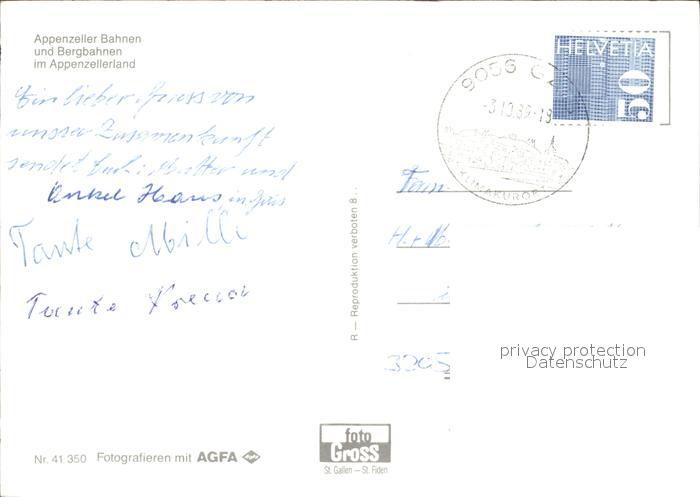 Appenzeller Bahnen
und Bergbahnen
im Appenzellerland
Ein lieber Gruss von
unser Zusammenkunft
sendet Euch: Mutter und
Onkel Hans, in Gais
Tante Milli
Tante
R — Reproduktion verboten 8..
HELVETIA
50
9056 GA
-3.10.89-19
KLIMAKURORT
Fam
H.
3205
privacy protection
Datenschutz
Nr. 41 350 Fotografieren mit AGFA
foto
Gross
St. Gallen — St. Fiden